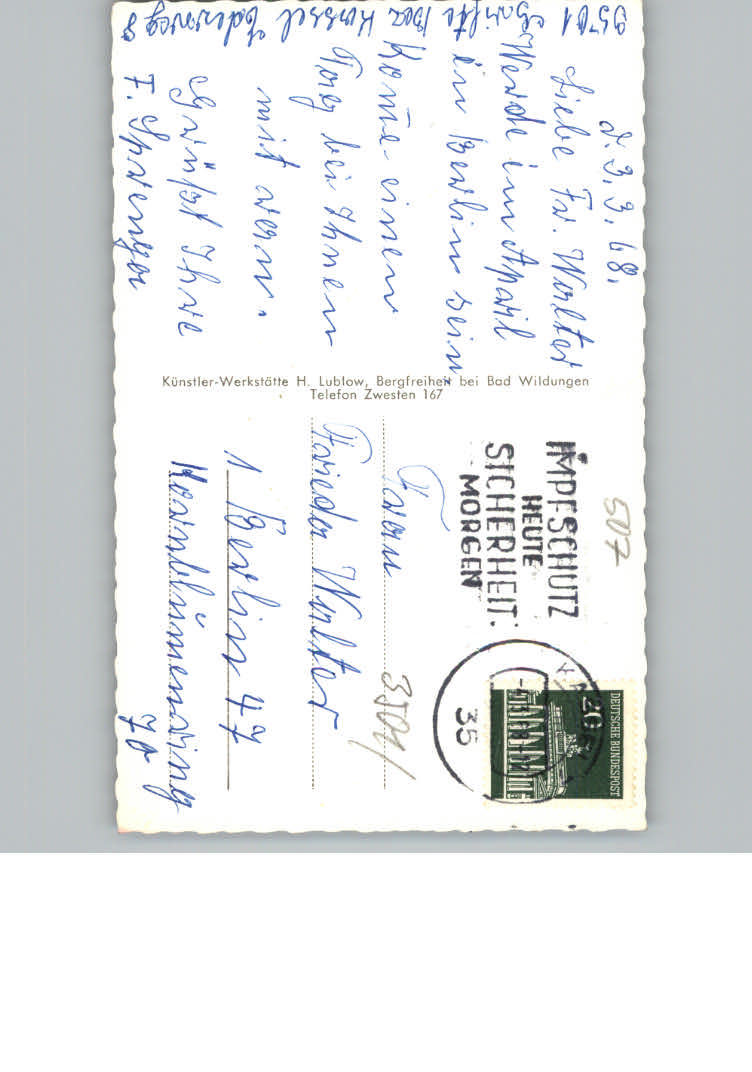 3501 Bez Kassel
d. 3.3.68.
Liebe Fr. Walter
Werde im April
in Berlin sein
Komme einen
Tag bei Ihnen
mit vorm.
Grüßt Ihre
F. Sprenger
Künstler-Werkstätte H. Lublow, Bergfreiheit bei Bad Wildungen
Telefon Zwesten 167
507
IMPFSCHUTZ
HEUTE
SICHERHEIT:
MORGEN
35
DEUTSCHE BUNDESPOST
20
Frau
Frieda Walter
1 Berlin 47
Kornblumenring
70